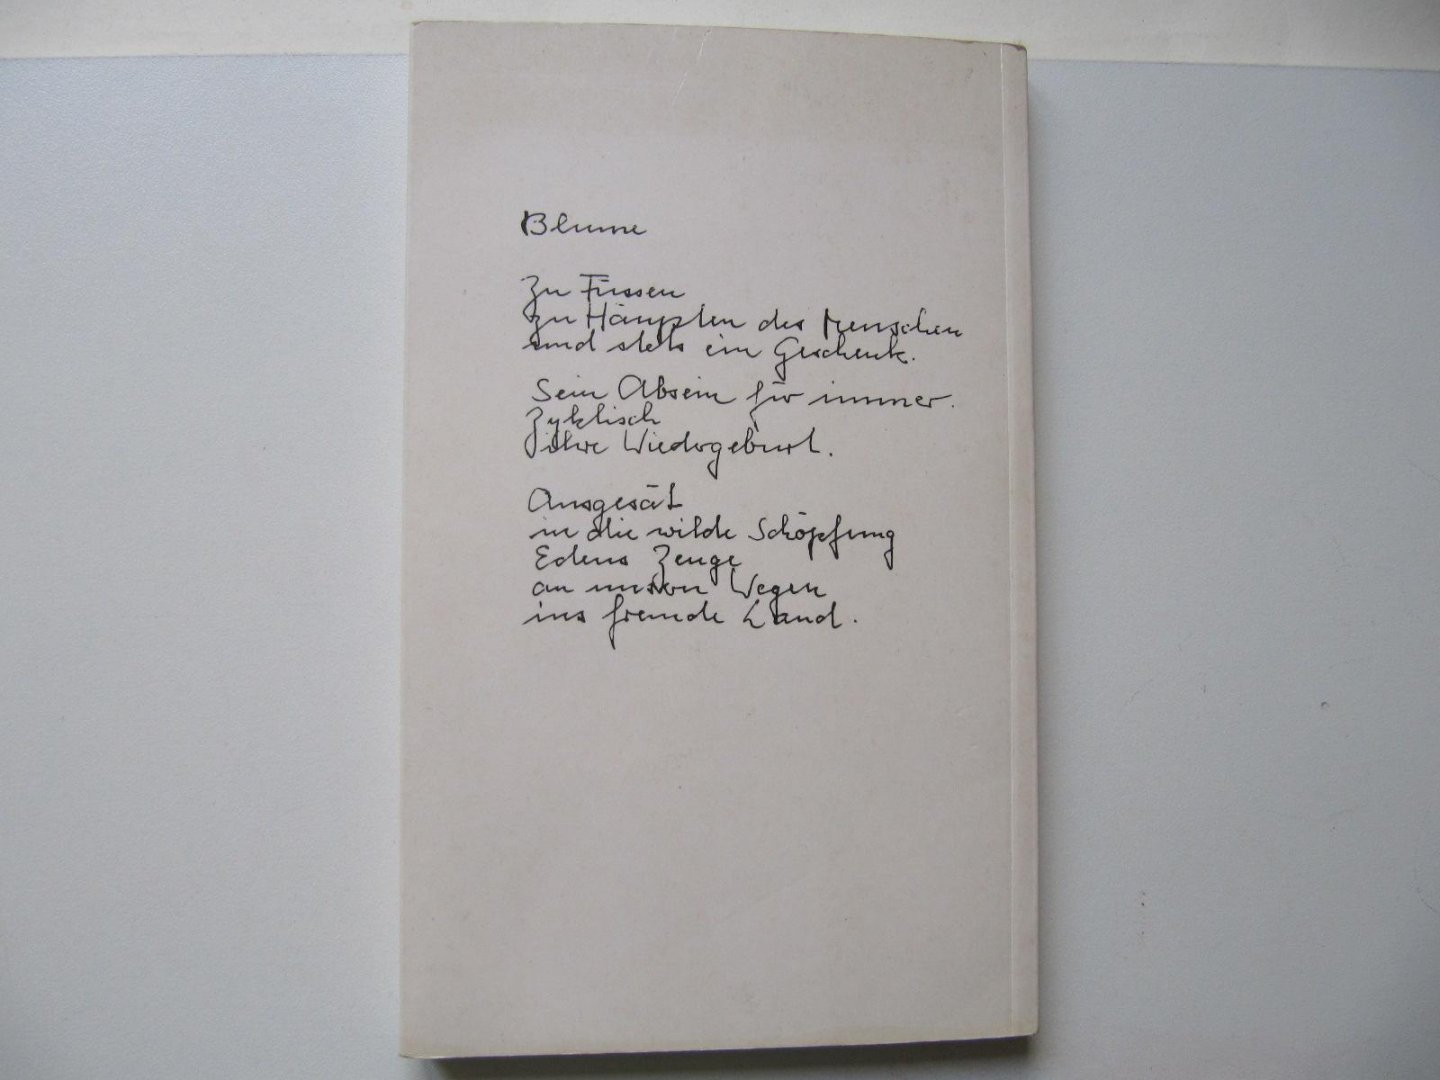 Blume
Zu Füssen
zu Häupten des Menschen
und stets ein Geschenk.
Sein Absein für immer.
Zyklisch
ihre Wiedergeburt.
Ausgesät
in die wilde Schöpfung
Edens Zeuge
an unsern Wegen
ins fremde Land.